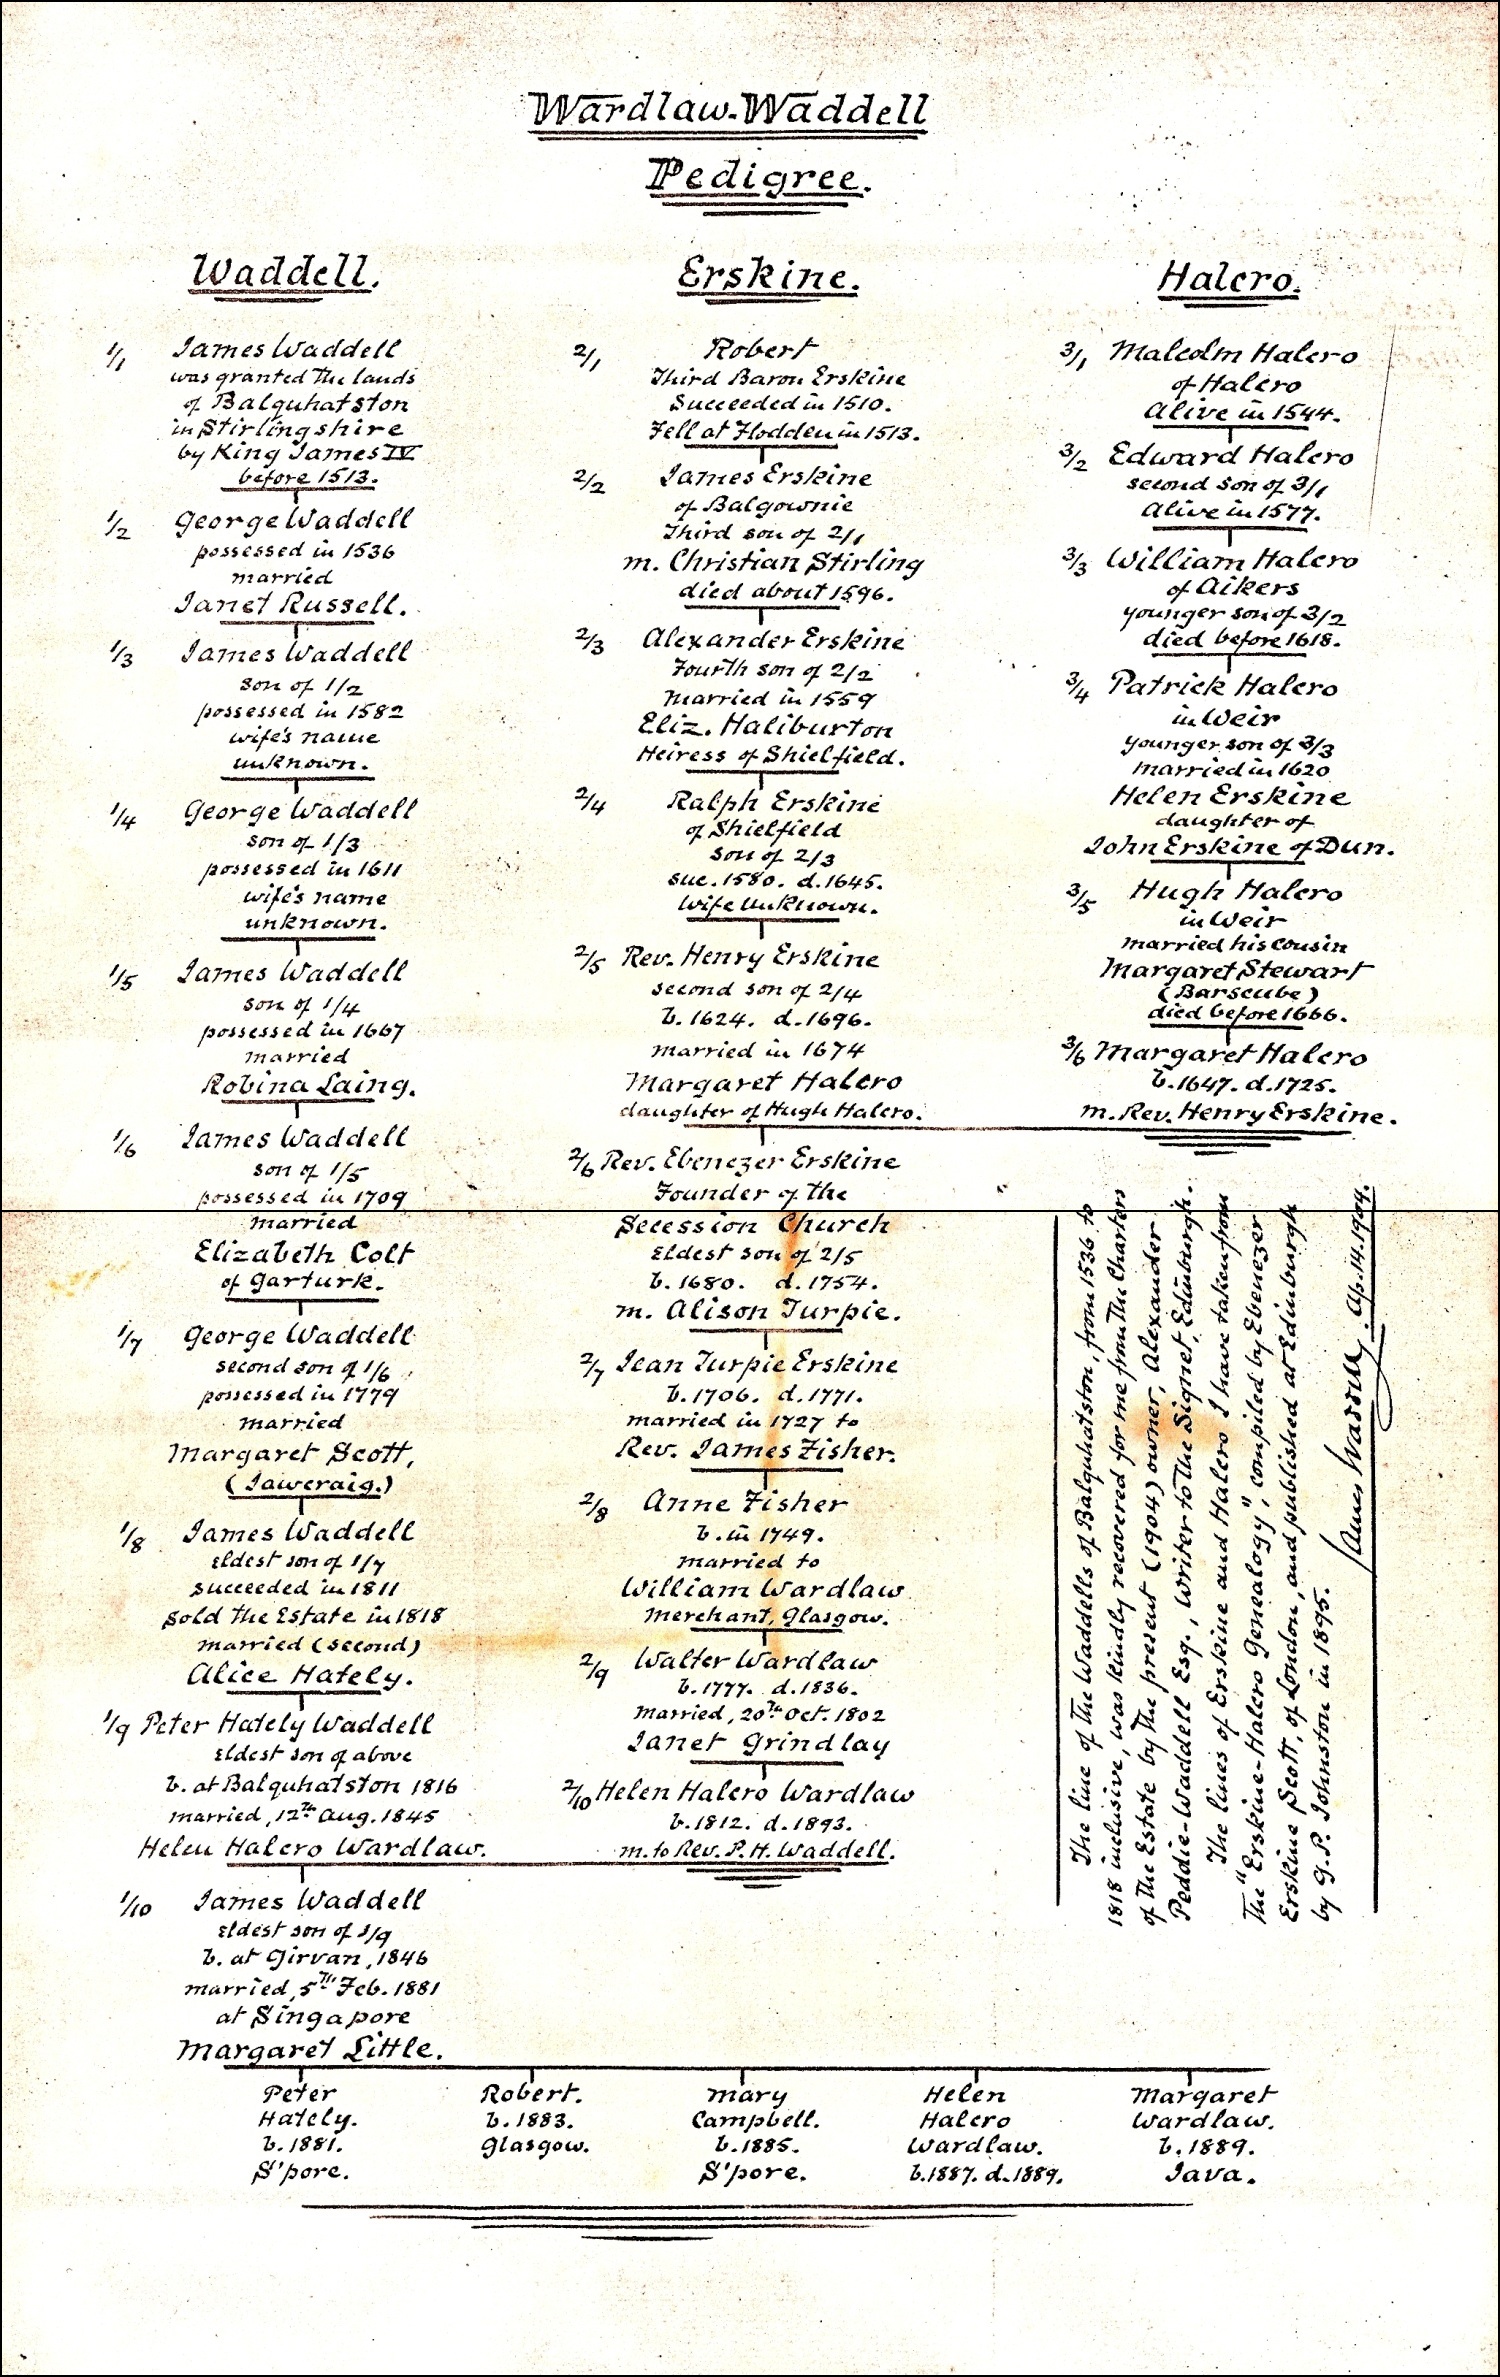 Wardlaw-Waddell
Pedigree.
Waddell.
1/1 James Waddell
was granted the lands
of Balquhatston
in Stirlingshire
by King James IV
before 1513.
1/2 George Waddell
possessed in 1536
married
Janet Russell.
1/3 James Waddell
son of 1/2
possessed in 1582
wife's name
unknown.
1/4 George Waddell
son of 1/3
possessed in 1611
wife's name
unknown.
1/5 James Waddell
son of 1/4
possessed in 1667
married
Robina Laing.
1/6 James Waddell
son of 1/5
possessed in 1709
married
Elizabeth Colt
of Garturk.
1/7 George Waddell
second son of 1/6
possessed in 1779
married
Margaret Scott,
(Jawcraig.)
1/8 James Waddell
Eldest son of 1/7
succeeded in 1811
sold the Estate in 1818
married (second)
Alice Hately.
1/9 Peter Hately Waddell
Eldest son of above
b. at Balquhatston 1816
married, 12th Aug. 1845
Helen Halcro Wardlaw.
1/10 James Waddell
Eldest son of 1/9
b. at Girvan, 1846
married, 5TH Feb. 1881
at Singapore
Margaret Little.
Erskine.
2/1 Robert
Third Baron Erskine
Succeeded in 1510.
Fell at Flodden in 1513.
2/2 James Erskine
of Balgownie
Third son of 2/1
m. Christian Stirling
died about 1596.
2/3 Alexander Erskine
Fourth son of 2/2
Married in 1559
Eliz. Haliburton
Heiress of Shielfield.
2/4 Ralph Erskine
of Shielfield
son of 2/3
suc. 1580. d. 1645.
Wife Unknown.
2/5 Rev. Henry Erskine
second son of 2/4
b. 1624. d. 1696.
married in 1674
Margaret Halcro
daughter of Hugh Halcro.
2/6 Rev. Ebenezer Erskine
Founder of the
Secession Church
Eldest son of 2/5
b. 1680. d. 1754.
m. Alison Turpie.
2/7 Jean Turpie Erskine
b. 1706. d. 1771.
married in 1727 to
Rev. James Fisher.
2/8 Anne Fisher
b. in 1749.
married to
William Wardlaw
Merchant, Glasgow.
2/9 Walter Wardlaw
b. 1777. d. 1836.
Married, 20th Oct. 1802
Janet Grindlay
2/10 Helen Halcro Wardlaw
b. 1812. d. 1893.
m. to Rev. P. H. Waddell.
Halcro.
3/1 Malcolm Halcro
of Halcro
Alive in 1544.
3/2 Edward Halcro
second son of 3/1
Alive in 1577.
3/3 William Halcro
of Aikers
younger son of 3/2
died before 1618.
3/4 Patrick Halcro
in Weir
younger son of 3/3
married in 1620
Helen Erskine
daughter of
John Erskine of Dun.
3/5 Hugh Halcro
in Weir
married his cousin
Margaret Stewart
(Barscube)
died before 1666.
3/6 Margaret Halcro
b. 1647. d. 1725.
m. Rev. Henry Erskine.
The line of the Waddells of Balquhatston, from 1536 to
1818 inclusive, was kindly recovered for me from the Charters
of the Estate by the present (1904) owner, Alexander
Peddie-Waddell Esq., Writer to the Signet, Edinburgh.
The lines of Erskine and Halcro I have taken from
The "Erskine-Halcro Genealogy", compiled by Ebenezer
Erskine Scott, of London, and published at Edinburgh
by G. P. Johnston in 1895.
James Waddell. Ap. 14. 1904.
Peter
Hately.
b. 1881.
S'pore.
Robert.
b. 1883.
Glasgow.
Mary
Campbell.
b. 1885.
S'pore.
Helen
Halcro
Wardlaw.
b. 1887. d. 1889.
Margaret
Wardlaw.
b. 1889.
Java.